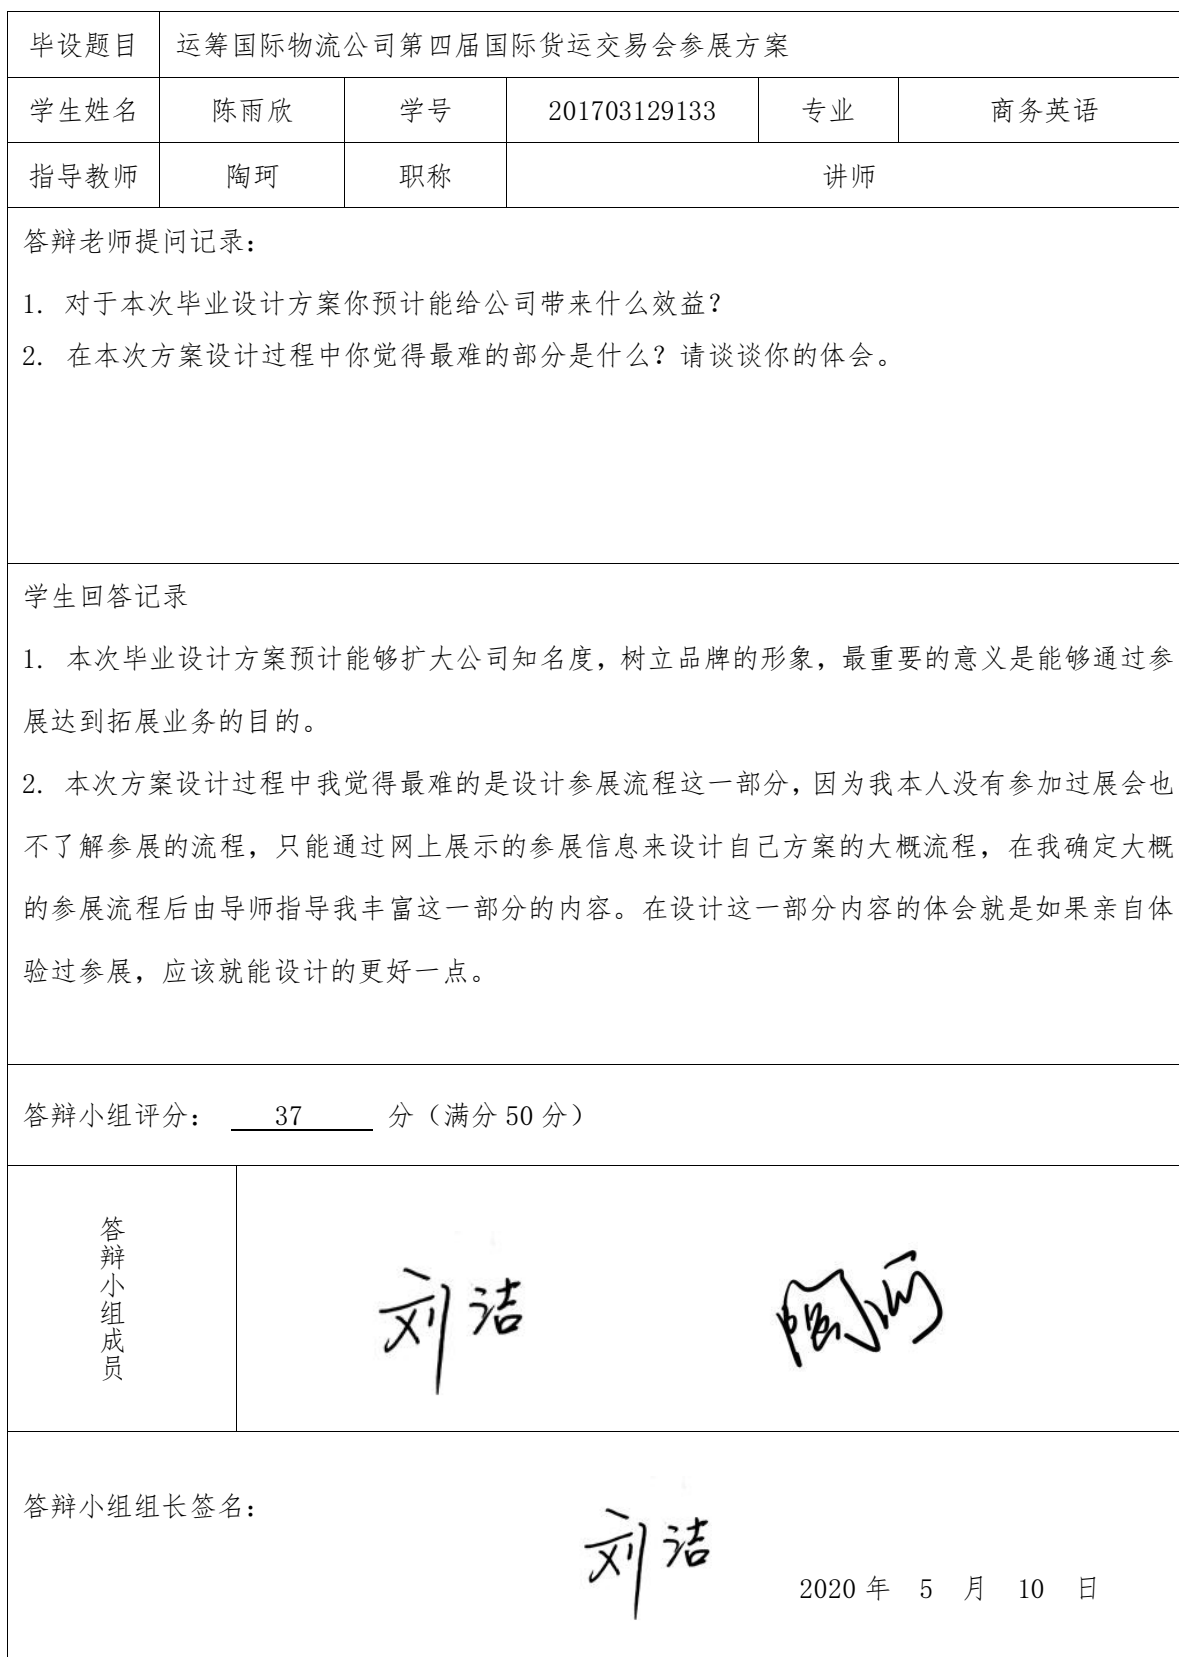 毕设题目 运筹国际物流公司第四届国际货运交易会参展方案
学生姓名 陈雨欣 学号 201703129133 专业 商务英语
指导教师 陶珂 职称 讲师
答辩老师提问记录：
1. 对于本次毕业设计方案你预计能给公司带来什么效益？
2. 在本次方案设计过程中你觉得最难的部分是什么？请谈谈你的体会。
学生回答记录
1. 本次毕业设计方案预计能够扩大公司知名度，树立品牌的形象，最重要的意义是能够通过参
展达到拓展业务的目的。
2. 本次方案设计过程中我觉得最难的是设计参展流程这一部分，因为我本人没有参加过展会也
不了解参展的流程，只能通过网上展示的参展信息来设计自己方案的大概流程，在我确定大概
的参展流程后由导师指导我丰富这一部分的内容。在设计这一部分内容的体会就是如果亲自体
验过参展，应该就能设计的更好一点。
答辩小组评分： 37 分（满分 50 分）
答辩小组成员 刘洁 陶珂
答辩小组组长签名： 刘洁
2020 年 5 月 10 日